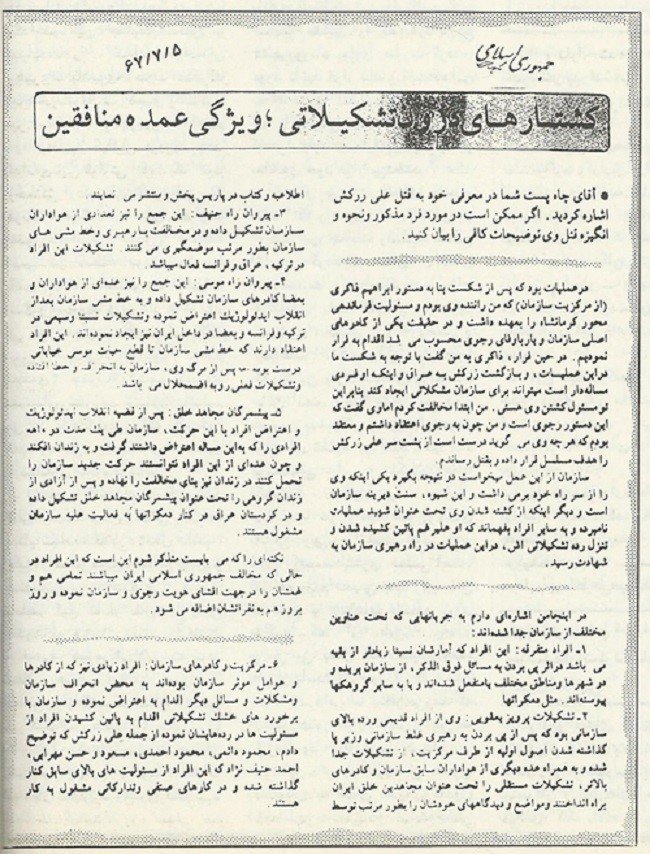 جمهوری اسلامی
۶۷/۷/۵
کشتارهای درون تشکیلاتی؛ ویژگی عمده منافقین
* آقای چاه پست شما در معرفی خود به قتل علی زرکش
اشاره کردید. اگر ممکن است در مورد فرد مذکور ونحوه و
انگیزه قتل وی توضیحات کافی را بیان کنید.
درعملیات بود که پس از شکست بنا به دستور ابراهیم ذاکری
(از مرکزیت سازمان) که من راننده وی بودم و مسئولیت فرماندهی
محور کرمانشاه را بعهده داشت و در حقیقت یکی از کادرهای
اصلی سازمان و یاروفادار رجوی محسوب می شد اقدام به فرار
نمودیم. در حین فرار، ذاکری به من گفت با توجه به شکست ما
دراین عملیات، و بازگشت زرکش به عراق و اینکه او فردی
مسأله‌دار است میتواند برای سازمان مشکلاتی ایجاد کند بنابراین
تو مسئول کشتن وی هستی. من ابتدا مخالفت کردم اما وی گفت که
این دستور رجوی است و من چون به رجوی اعتقاد داشتم و معتقد
بودم که هرچه وی می گوید درست است از پشت سر علی زرکش
را هدف مسلسل قرار داده و بقتل رساندم.
سازمان از این عمل میخواست دو نتیجه بگیرد یکی اینکه وی
را از سر راه خود برمی داشت و این شیوه، سنت دیرینه سازمان
است و دیگر اینکه از کشته شدن وی تحت عنوان شهید عملیات
نامبرده و به سایر افراد بفهماند که او علیرغم پائین کشیده شدن و
تنزل رده تشکیلاتی اش، دراین عملیات در راه رهبری سازمان به
شهادت رسید.
در اینجامن اشاره‌ای دارم به جریانهایی که تحت عناوین
مختلف از سازمان جدا شده‌اند:
۱ـ افراد متفرقه: این افراد که آمارشان نسبتا زیادتر از بقیه
می باشد دراثر پی بردن به مسائل فوق الذکر، از سازمان بریده و
در شهرها ومناطق مختلف یامنفعل شده‌اند و یا به سایر گروهکها
پیوسته‌اند. مثل دمکراتها
۲ـ تشکیلات پرویز یعقوبی: وی از افراد قدیمی ورده بالای
سازمانی بود که پس از پی بردن به رهبری غلط سازمانی وزیر پا
گذاشته شدن اصول اولیه از طرف مرکزیت، از تشکیلات جدا
شده و به همراه عده دیگری از هواداران سابق سازمان و کادرهای
بالاتر، تشکیلات مستقلی را تحت عنوان مجاهدین خلق ایران
براه انداختند ومواضع و دیدگاههای خودشان را بطور مرتب توسط
اطلاعیه وکتاب در پاریس پخش و منتشر می نمایند.
۳ـ پیروان راه حنیف: این جمع را نیز تعدادی از هواداران
سازمان تشکیل داده و در مخالفت با رهبری وخط مشی های
سازمان بطور مرتب موضعگیری می کنند. تشکیلات این افراد
در ترکیه، عراق و فرانسه فعال میباشد.
۴ـ پیروان راه موسی: این جمع را نیز عده‌ای از هواداران و
بعضا کادرهای سازمان تشکیل داده و به خط مشی سازمان بعداز
انقلاب ایدئولوژیک اعتراض نموده وتشکیلات نسبتا وسیعی در
ترکیه وفرانسه و بعضا در داخل ایران نیز ایجاد نموده‌اند. این افراد
اعتقاد دارند که خط مشی سازمان تا قطع حیات موسی خیابانی
درست بوده پس از مرگ وی، سازمان به انحراف و خطا افتاده
وتشکیلات فعلی رو به اضمحلال می باشد.
۵ـ پیشمرگان مجاهد خلق: پس از قضیه انقلاب ایدئولوژیک
و اعتراض افراد با این حرکت، سازمان طی یک مدت دو ماهه
افرادی را که به‌این مساله اعتراض داشتند گرفت و به زندان افکند
و چون عده‌ای از این افراد نتوانستند حرکت جدید سازمان را
تحمل کنند در زندان نیز بنای مخالفت را نهاده و پس از آزادی از
زندان گروهی را تحت عنوان پیشمرگان مجاهد خلق تشکیل داده
و در کردستان عراق در کنار دمکراتها به فعالیت علیه سازمان
مشغول هستند.
نکته‌ای را که می بایست متذکر شوم این است که این افراد در
حالی که مخالف جمهوری اسلامی ایران میباشند تمامی هم و
غمشان را درجهت افشای هویت رجوی و سازمان نموده و روز
بروز هم به نفراتشان اضافه می شود.
۶ـ مرکزیت و کادرهای سازمان: افراد زیادی نیز که از کادرها
و عوامل موثر سازمان بوده‌اند به محض انحراف سازمان
ومشکلات و مسائل دیگر اقدام به اعتراض نموده و سازمان با
برخورد های خشک تشکیلاتی اقدام به پائین کشیدن افراد از
مسئولیت ها و رده‌هایشان نموده از جمله علی زرکش که توضیح
دادم، محمود دائمی، محمود احمدی، مسعود و حسن مهرابی،
احمد حنیف نژاد که این افراد از مسئولیت های بالای سابق کنار
گذاشته شده و در کارهای صنفی وتدارکاتی مشغول به کار
هستند.